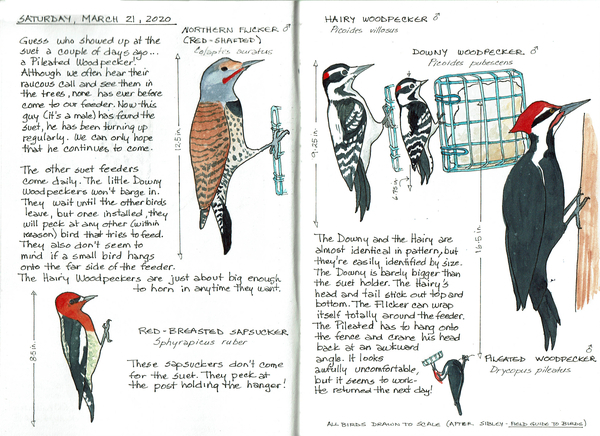 SATURDAY, MARCH 21, 2020
Guess who showed up at the
suet a couple of days ago...
a Pileated Woodpecker.
Although we often hear their
raucous call and see them in
the trees, none has ever before
come to our feeder. Now this
guy (it's a male) has found the
suet, he has been turning up
regularly. We can only hope
that he continues to come.
The other suet feeders
come daily. The little Downy
Woodpeckers won't barge in.
They wait until the other birds
leave, but once installed, they
will peck at any (within
reason) bird that tries to feed.
They also don't seem to
mind if a small bird hangs
onto the far side of the feeder.
The Hairy Woodpeckers are just about big enough
to horn in anytime they want.
NORTHERN FLICKER ♂
(RED-SHAFTED)
Colaptes auratus
12.5 in.
8.5 in.
RED-BREASTED SAPSUCKER
Sphyrapicus ruber
These sapsuckers don't come
for the suet. They peck at
the post holding the hanger!
HAIRY WOODPECKER ♂
Picoides villosus
DOWNY WOODPECKER ♂
Picoides pubescens
9.25 in.
6.75 in.
16.5 in.
The Downy and the Hairy are
almost identical in pattern, but
they're easily identified by size.
The Downy is barely bigger than
the suet holder. The Hairy's
head and tail stick out top and
bottom. The Flicker can wrap
itself totally around the feeder.
The Pileated has to hang onto
the fence and crane his head
back at an awkward
angle. It looks
awfully uncomfortable,
but it seems to work-
He returned the next day!
♂
PILEATED WOODPECKER
Dryocopus pileatus
ALL BIRDS DRAWN TO SCALE (AFTER SIBLEY - FIELD GUIDE TO BIRDS)